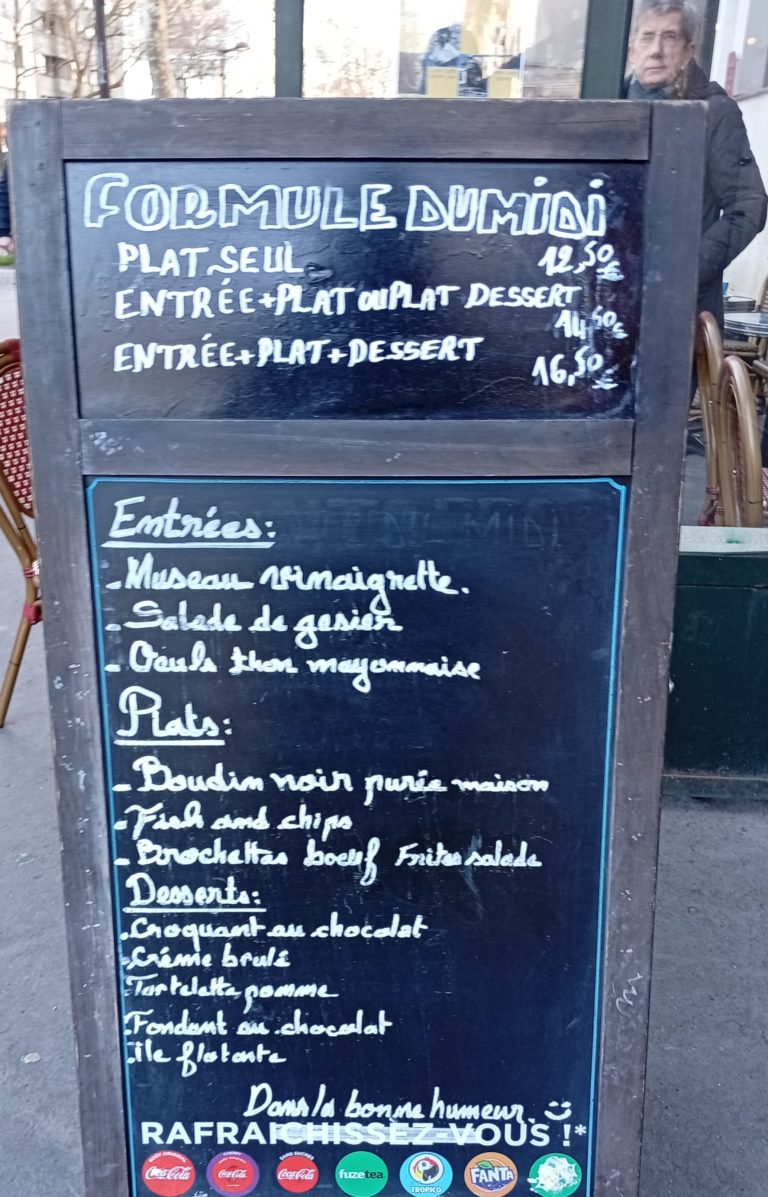 FORMULE DU MIDI
PLAT SEUL 12,50€
ENTRÉE+PLAT OU PLAT DESSERT
14,50€
ENTRÉE+PLAT+DESSERT 16,50€
Entrées:
- Museau vinaigrette.
- Salade de gesier
- Oeufs thon mayonnaise
Plats:
- Boudin noir purée maison
- Fish and chips
- Brochettes boeuf Frites salade
Desserts:
- Croquant au chocolat
- Créme brulé
- Tartelette pomme
- Fondant au chocolat
- Île flotante
Dans la bonne humeur. :)
RAFRAICHISSEZ-VOUS !*
GOÛT ORIGINAL CHERRY SANS SUCRES
Coca-Cola Coca-Cola Coca-Cola fuzetea TROPICO FANTA